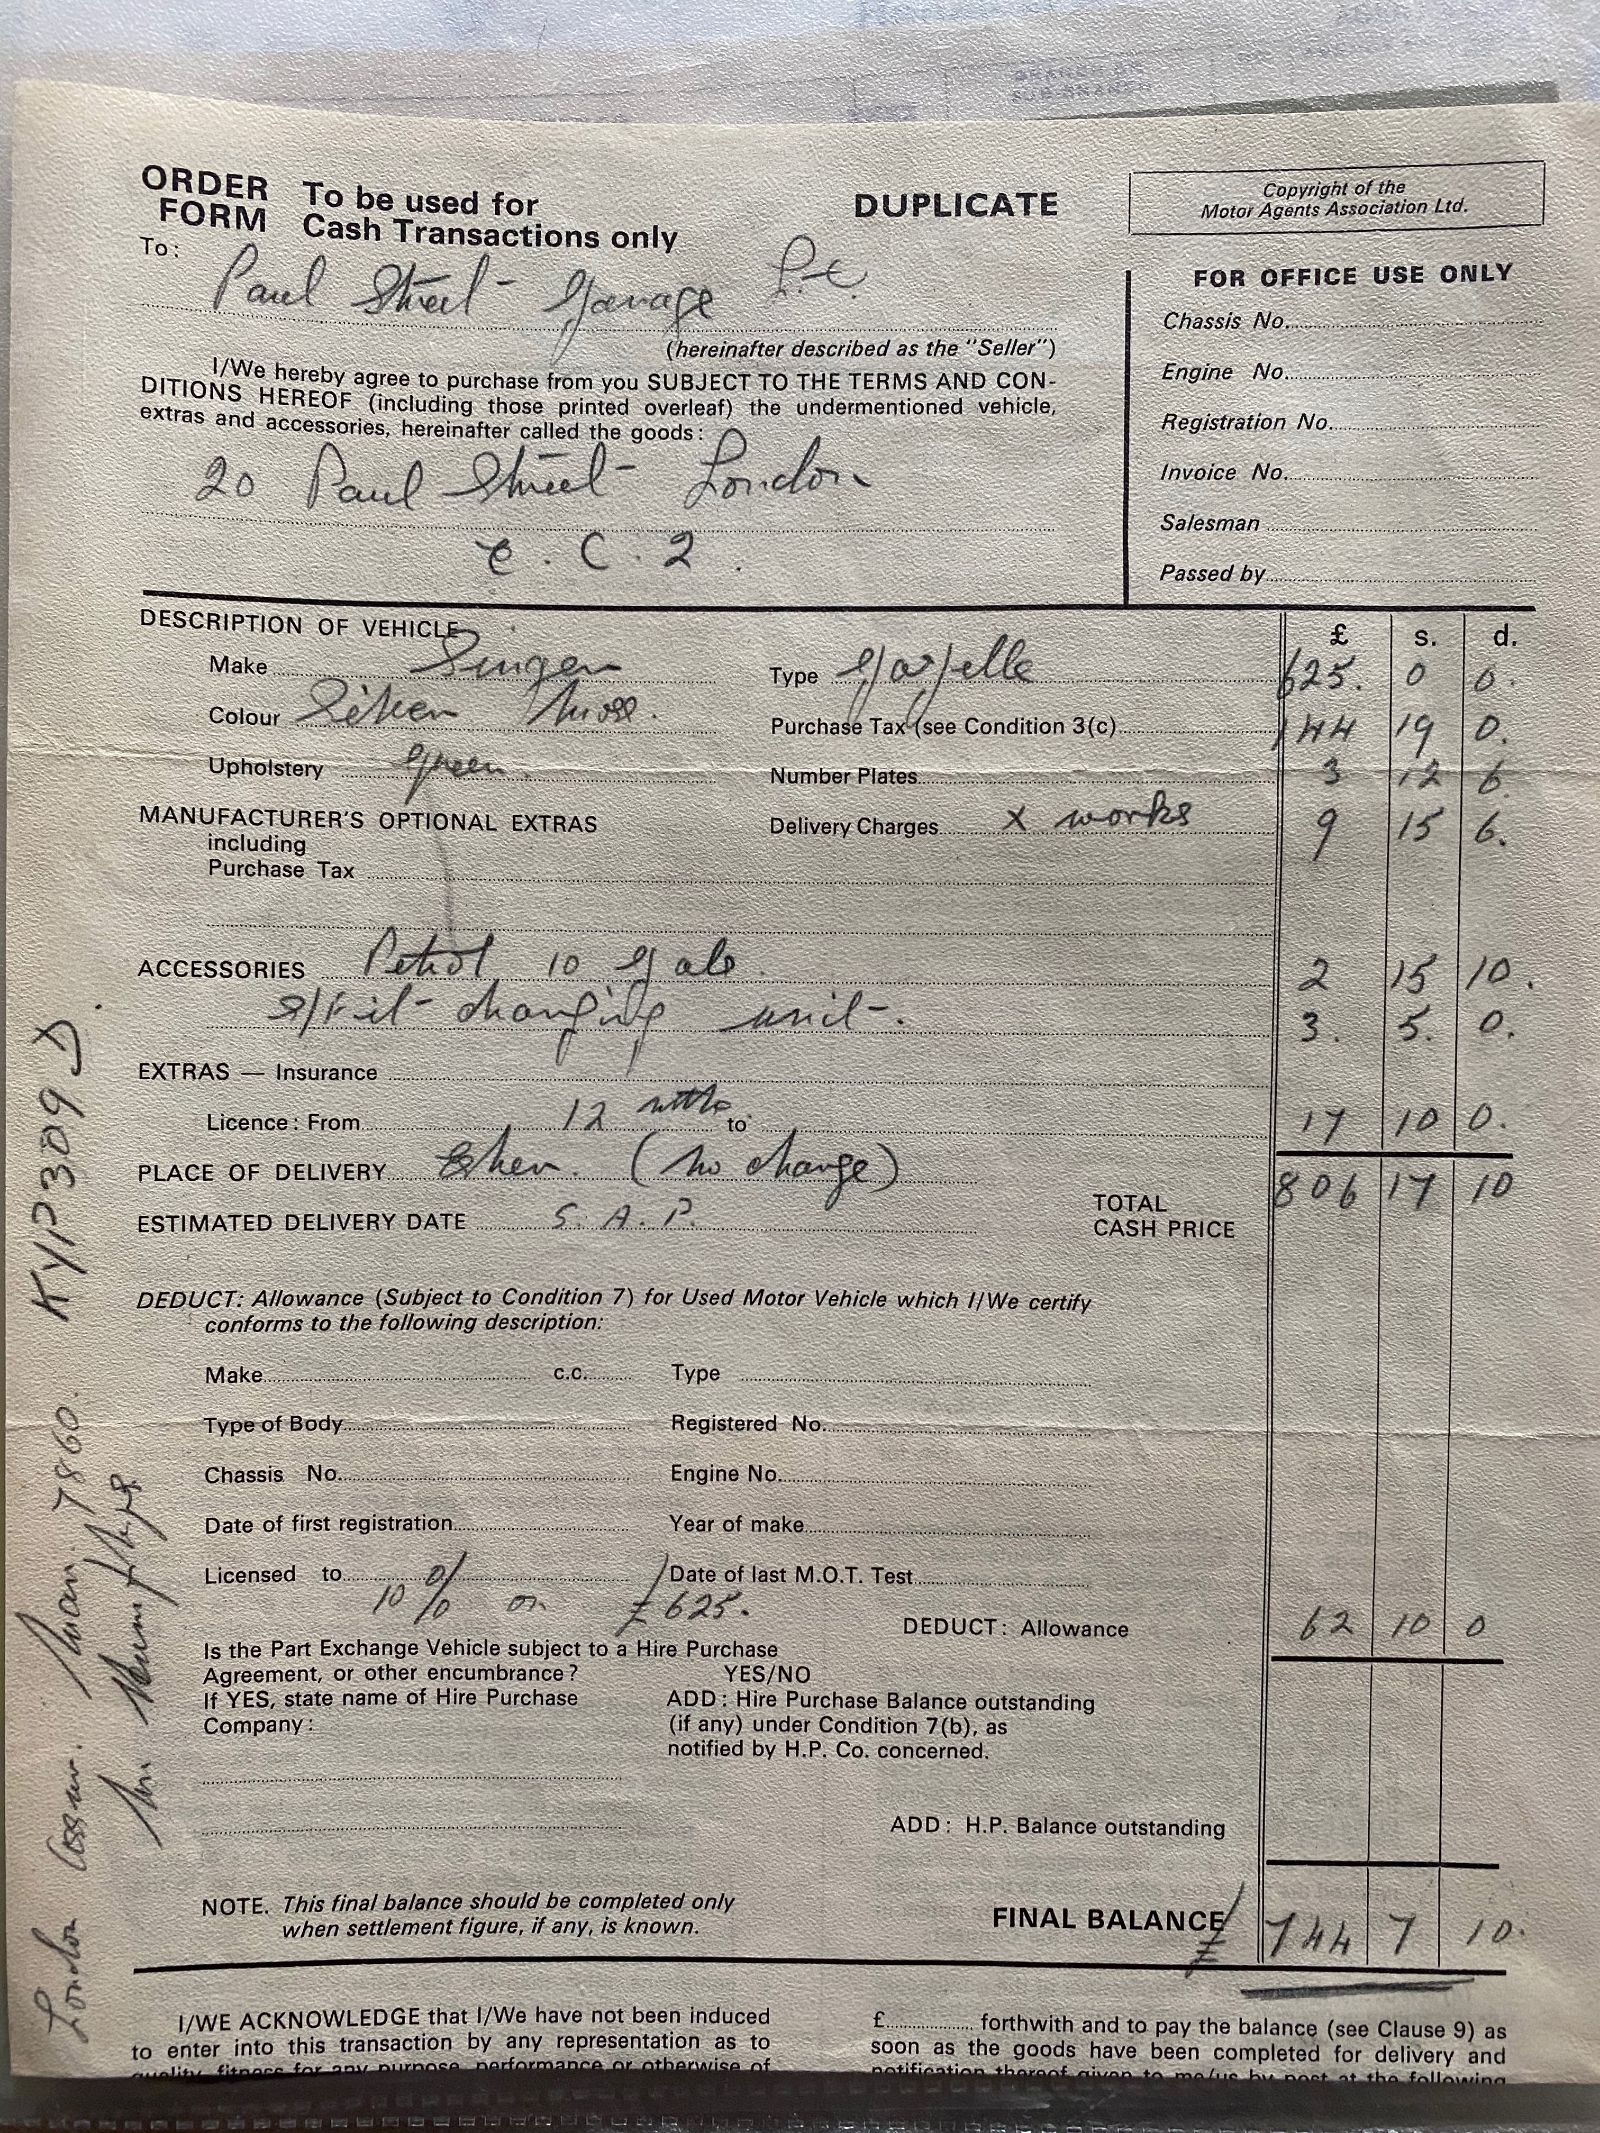 ORDER FORM To be used for Cash Transactions only
DUPLICATE
Copyright of the
Motor Agents Association Ltd.
To:
Paul Street Garage
(hereinafter described as the "Seller")
I/We hereby agree to purchase from you SUBJECT TO THE TERMS AND CON-
DITIONS HEREOF (including those printed overleaf) the undermentioned vehicle,
extras and accessories, hereinafter called the goods:
20 Paul Street London
E.C.2.
FOR OFFICE USE ONLY
Chassis No.
Engine No.
Registration No.
Invoice No.
Salesman
Passed by
DESCRIPTION OF VEHICLE
£ s. d.
Make Singer Type Gazelle 625. 0 0.
Colour Moss. Purchase Tax (see Condition 3(c) 144 19 0.
Upholstery green. Number Plates 3 12 6.
MANUFACTURER'S OPTIONAL EXTRAS Delivery Charges X works 9 15 6.
including
Purchase Tax
ACCESSORIES Petrol 10 gals. 2 15 10.
changing unit. 3. 5. 0.
EXTRAS — Insurance
Licence: From 12 mths to 17 10 0.
PLACE OF DELIVERY (no change)
TOTAL CASH PRICE 806 17 10
ESTIMATED DELIVERY DATE S.A.P.
DEDUCT: Allowance (Subject to Condition 7) for Used Motor Vehicle which I/We certify
conforms to the following description:
Make c.c. Type
Type of Body Registered No.
Chassis No. Engine No.
Date of first registration Year of make
Licensed to Date of last M.O.T. Test
10% on £625.
DEDUCT: Allowance 62 10 0
Is the Part Exchange Vehicle subject to a Hire Purchase
Agreement, or other encumbrance? YES/NO
If YES, state name of Hire Purchase
Company:
ADD: Hire Purchase Balance outstanding
(if any) under Condition 7(b), as
notified by H.P. Co. concerned.
ADD: H.P. Balance outstanding
NOTE. This final balance should be completed only
when settlement figure, if any, is known.
FINAL BALANCE £ 744 7 10.
I/WE ACKNOWLEDGE that I/We have not been induced
to enter into this transaction by any representation as to
quality, fitness for any purpose, performance or otherwise of
£ forthwith and to pay the balance (see Clause 9) as
soon as the goods have been completed for delivery and
notification thereof given to me/us by post at the following
London Assur. Man. 7860. KYP309D.
Mr. Humphrys